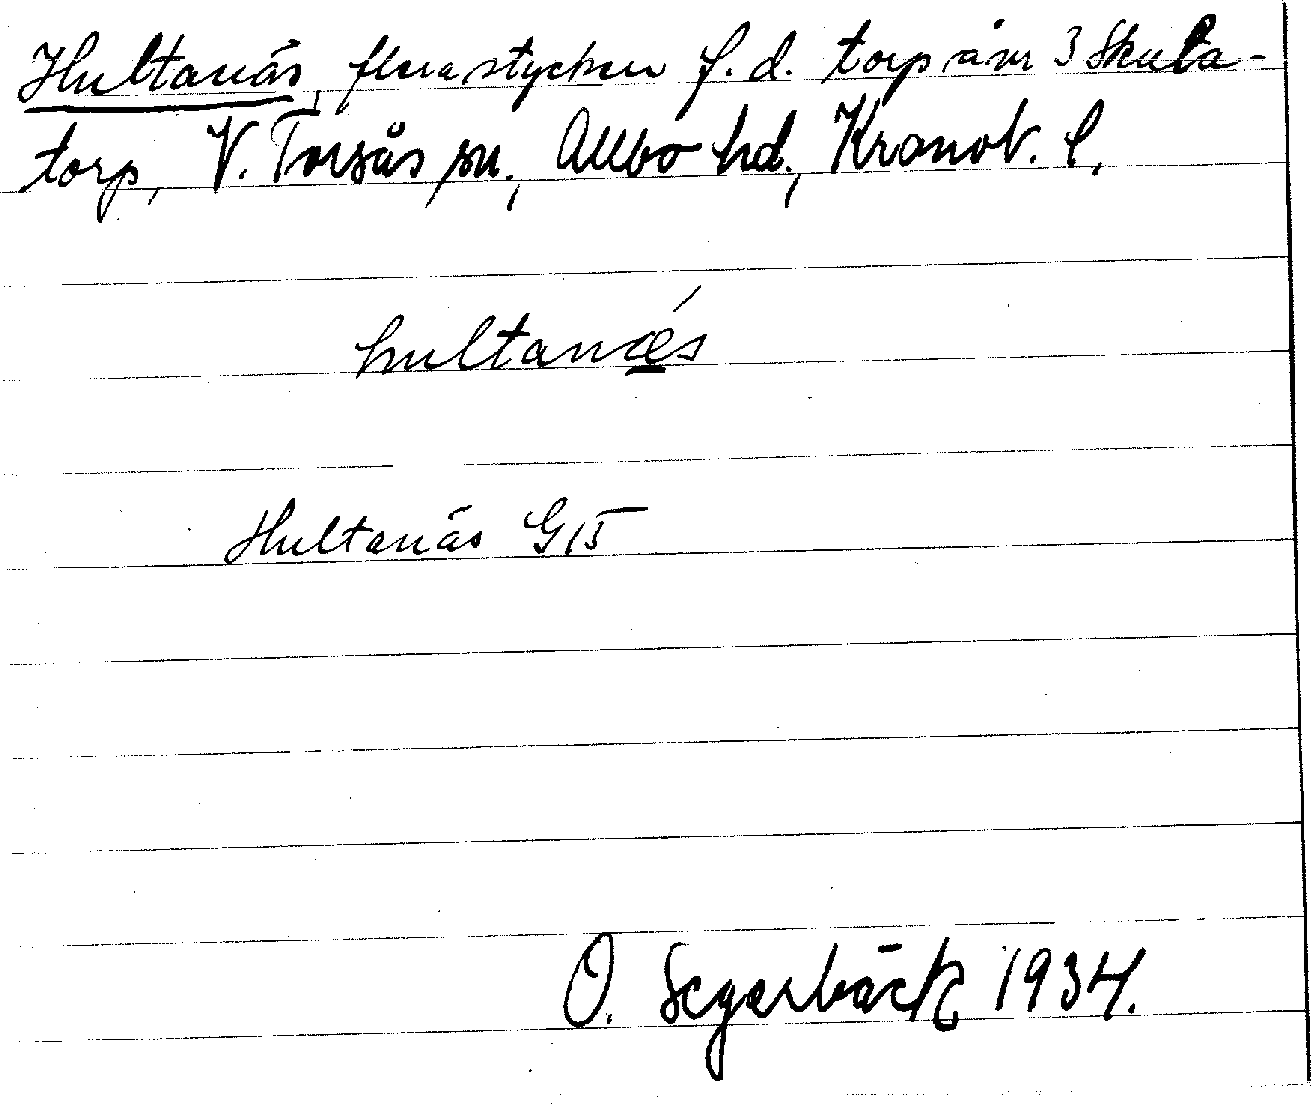 Hultanäs, flera stycken f. d. torp åvr 3 Skuta-
torp, V. Torsås sn., Allbo hd., Kronob. l.
hultanǽs
Hultanäs G15
O. Segerbäck 1934.